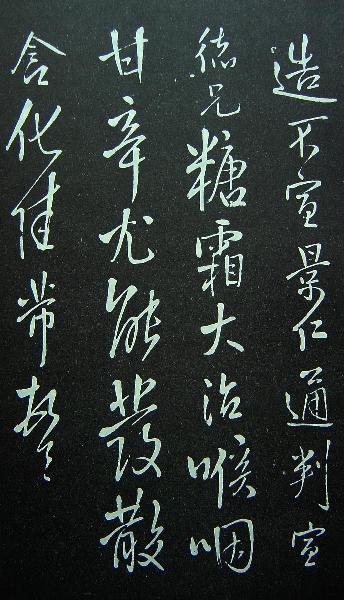 造不宣景仁通判宣
德兄糖霜大治喉咽
甘辛尤能發散
含化佳芾